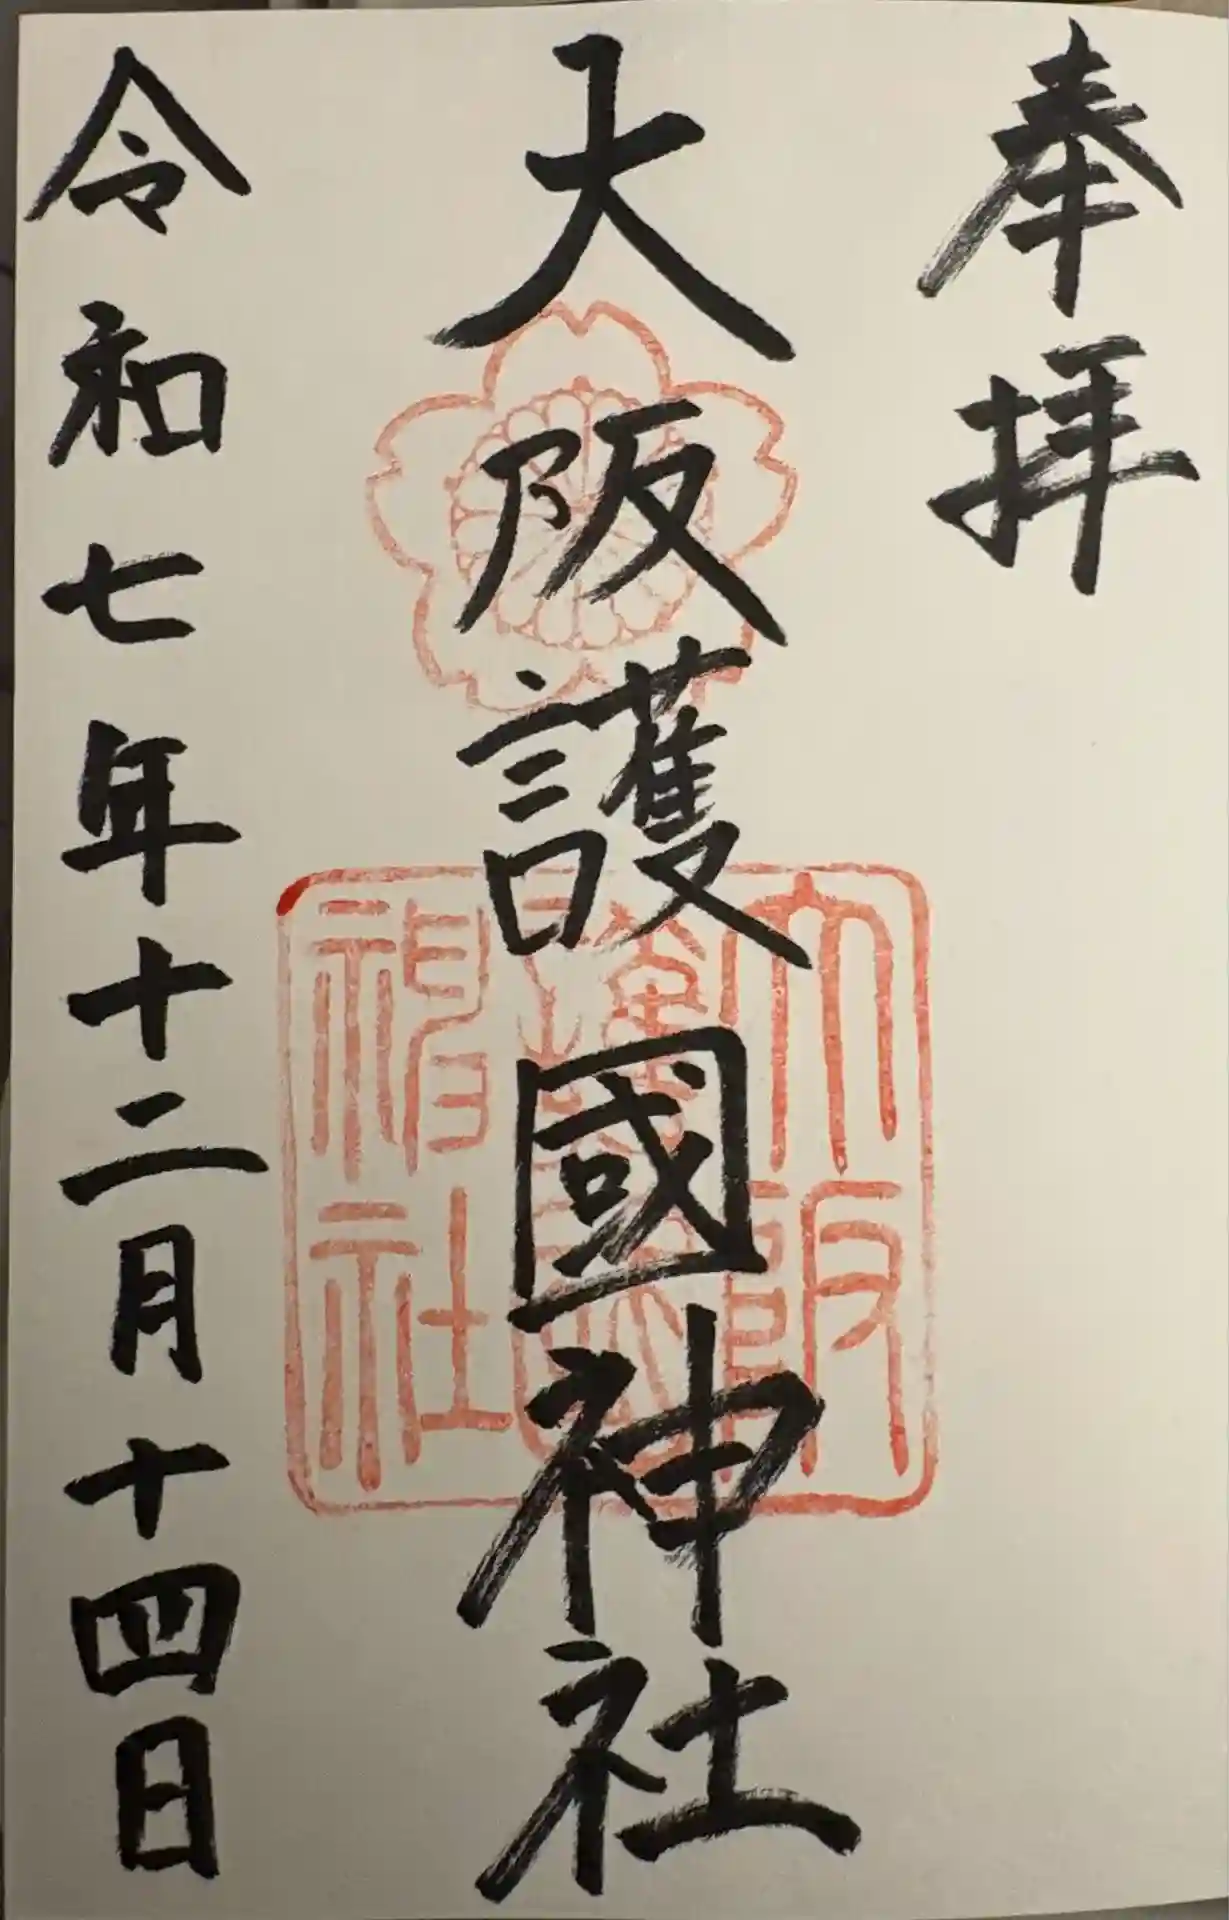 奉拝
大阪護國神社
大阪
護國
神社
令和七年十二月十四日